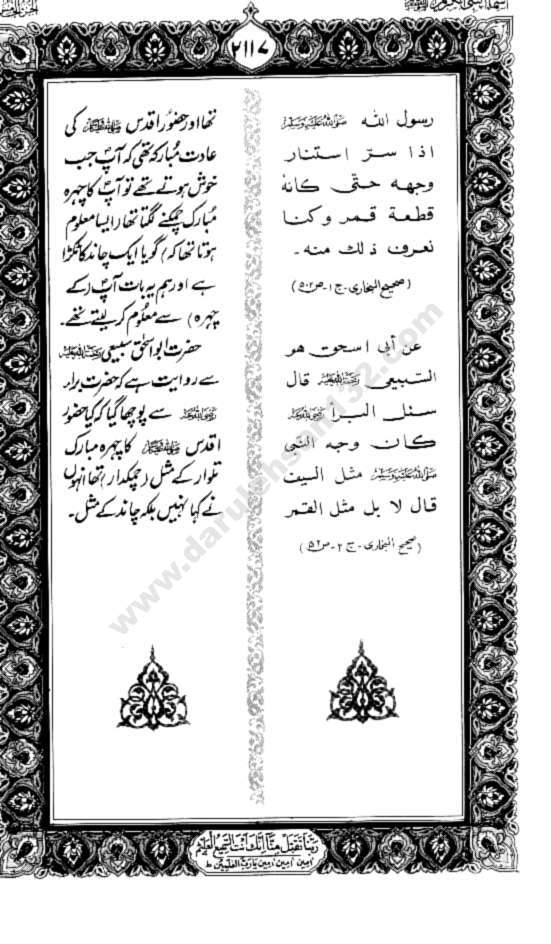 ۲۱۱۷
رسول الله ﷺ
اذا سرّ استنار
وجهه حتّى كانه
قطعة قمر وكنا
نعرف ذلك منه ۔
(صحیح البخاری ۔ ج ۱ ۔ ص ۵۰۲)
عن أبى اسحق هو
السّبيعى قال
سئل البرا
كان وجه النّبى
ﷺ مثل السيف
قال لا بل مثل القمر
(صحیح البخاری ۔ ج ۲ ۔ ص ۵۲)
تھا اور حضورِ اقدس ﷺ کی
عادت مُبارکہ تھی کہ آپؐ جب
خوش ہوتے تھے تو آپؐ کا چہرہ
مُبارک چمکنے لگتا تھا (ایسا معلوم
ہوتا تھا کہ) گویا ایک چاند کا ٹکڑا
ہے اور ہم یہ بات آپؐ (کے
چہرہ) سے معلُوم کر لیتے تھے۔
حضرت ابو اسحٰق سبیعی
سے روایت ہے کہ حضرت براء
سے پوچھا گیا کہ کیا حضورِ
اقدس ﷺ کا چہرہ مبارک
تلوار کے مثل (چمکدار) تھا انہوں
نے کہا نہیں بلکہ چاند کے مثل۔
ربنا تقبل منا انك انت السميع العليم
امين امين امين يا رب العلمين ط